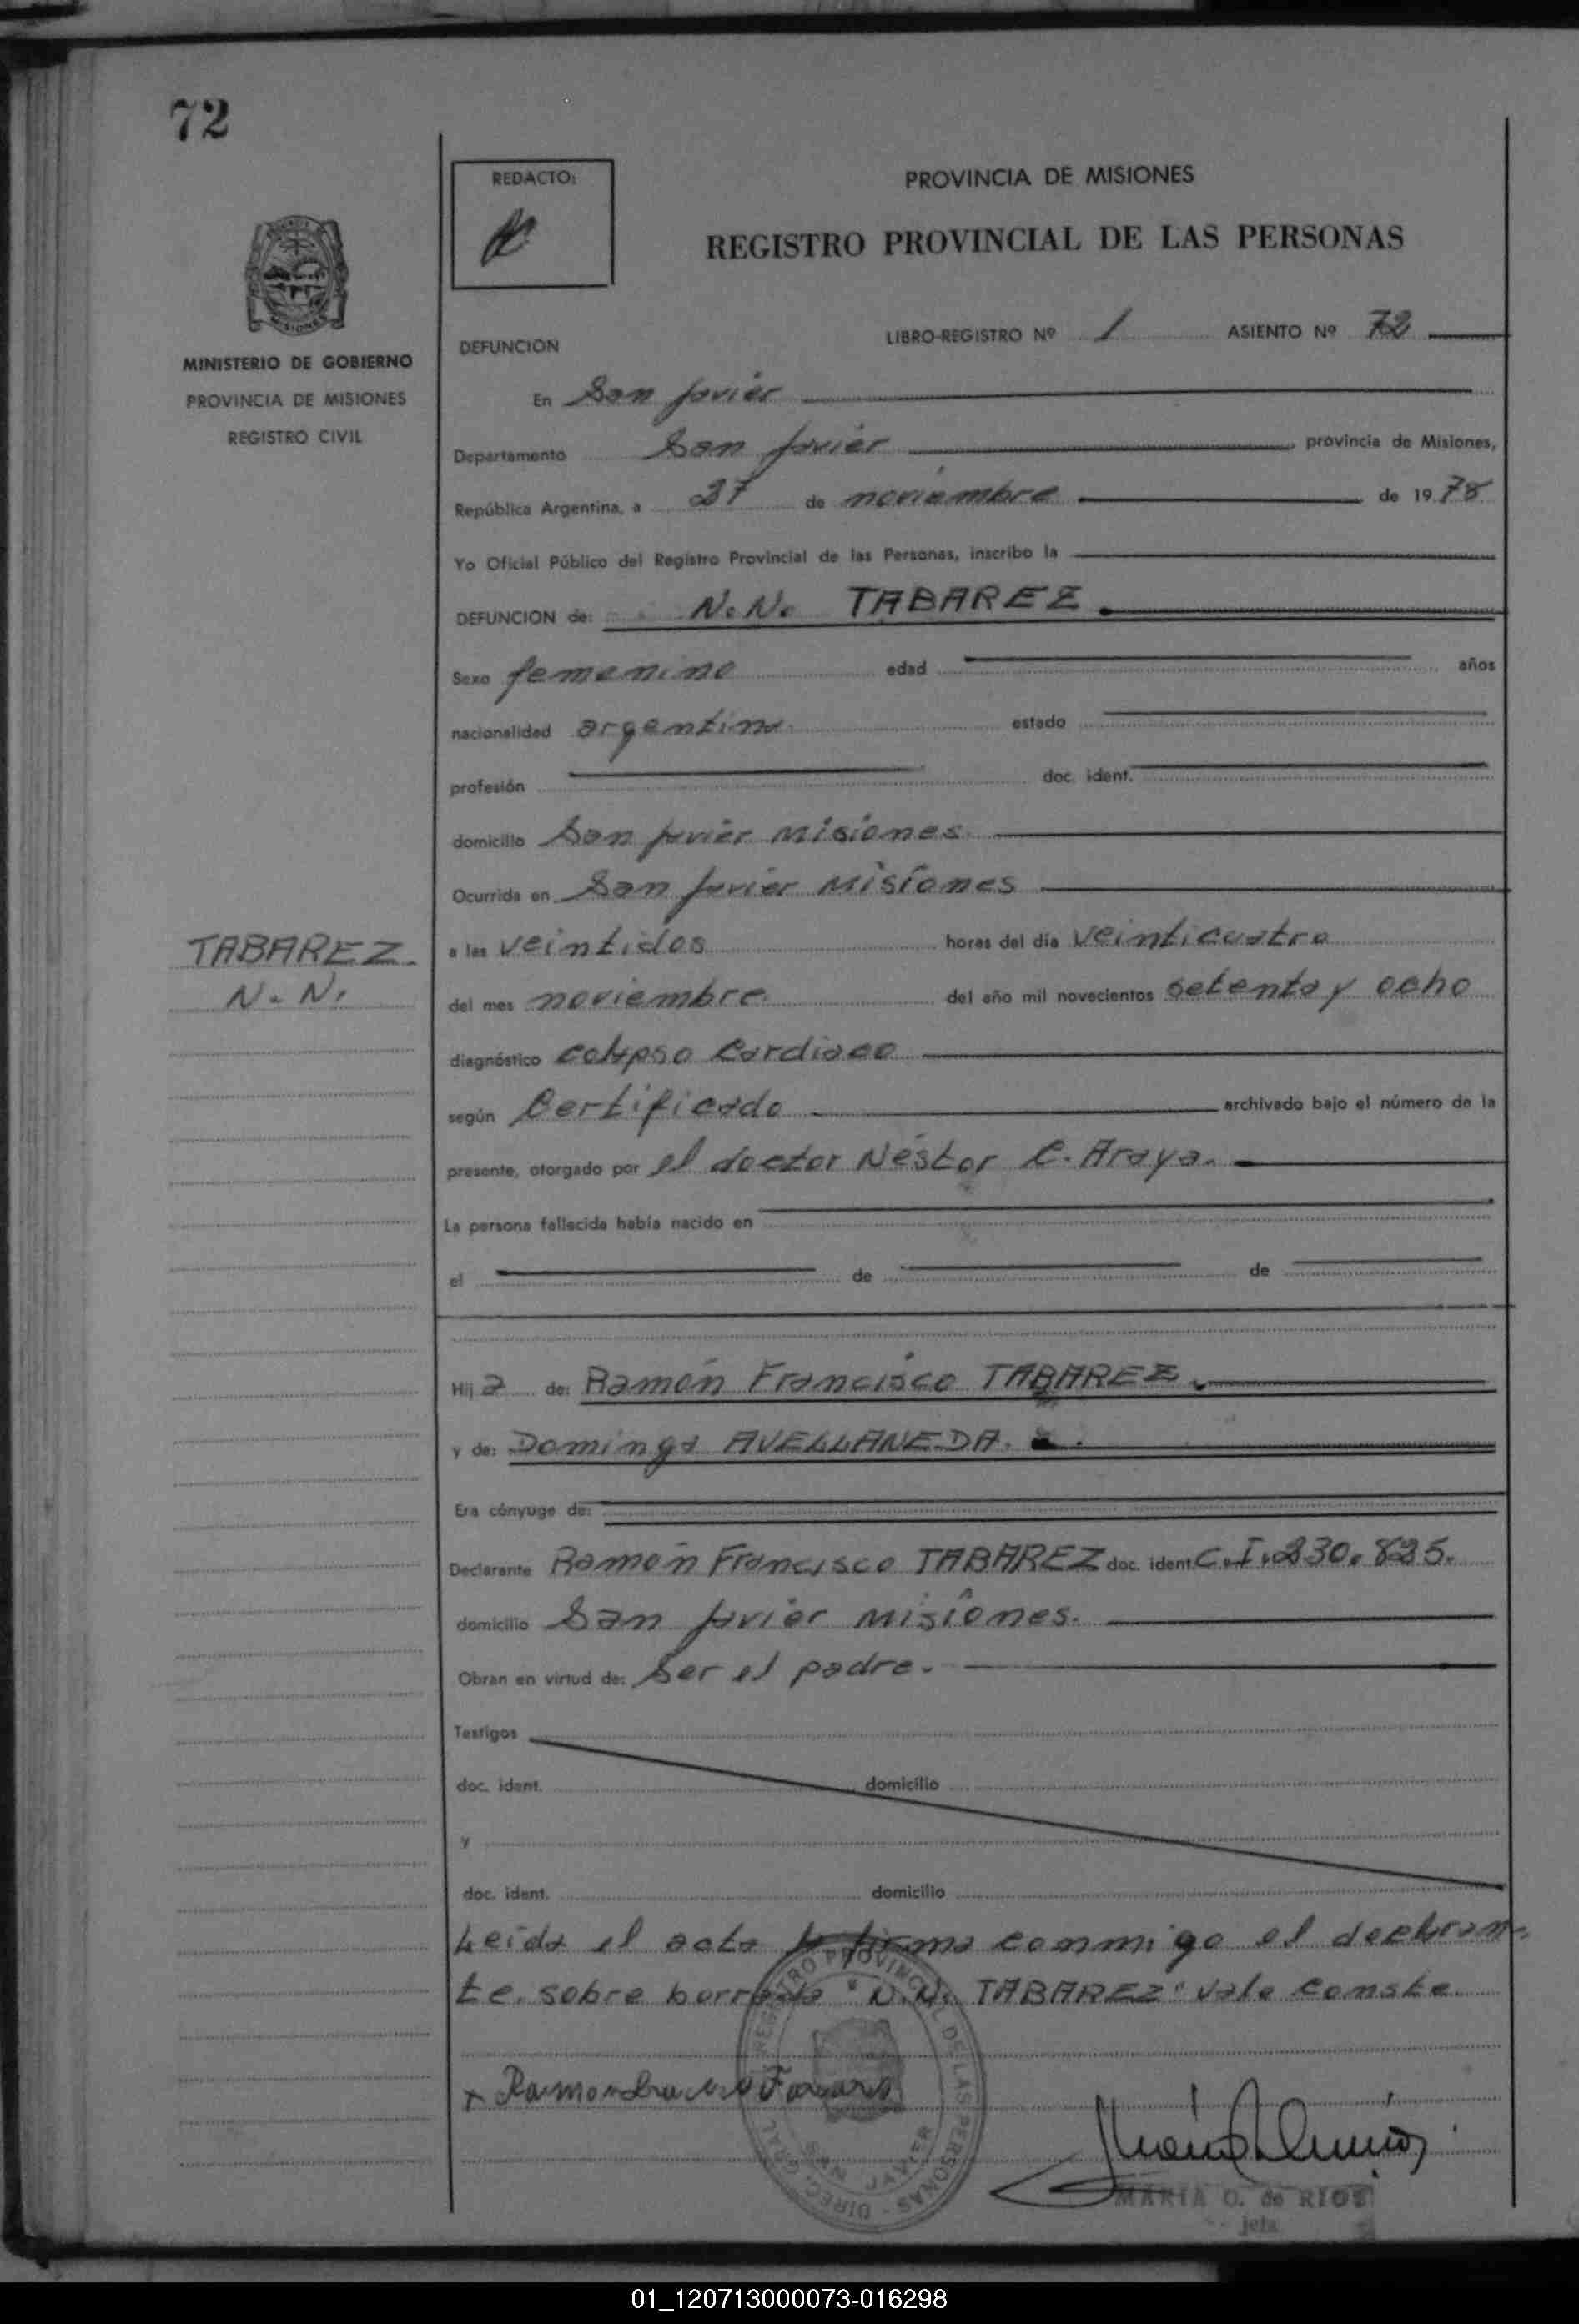 72
REDACTO:
PROVINCIA DE MISIONES
REGISTRO PROVINCIAL DE LAS PERSONAS
MISIONES
MINISTERIO DE GOBIERNO
PROVINCIA DE MISIONES
REGISTRO CIVIL
LIBRO-REGISTRO Nº 1 ASIENTO Nº 72
DEFUNCION
En San Javier
Departamento San Javier provincia de Misiones,
República Argentina, a 27 de noviembre de 1978
Yo Oficial Público del Registro Provincial de las Personas, inscribo la
DEFUNCION de: N.N. TABAREZ.
Sexo femenino edad años
nacionalidad argentina estado
profesión doc. ident.
domicilio San Javier Misiones
Ocurrida en San Javier Misiones
TABAREZ
N. N.
a las veintidos horas del día veinticuatro
del mes noviembre del año mil novecientos setenta y ocho
diagnóstico colapso Cardiaco
según Certificado archivado bajo el número de la
presente, otorgado por el doctor Néstor C. Araya.
La persona fallecida había nacido en
el de de
Hija de: Ramón Francisco TABAREZ.
y de: Dominga AVELLANEDA.
Era cónyuge de:
Declarante Ramón Francisco TABAREZ doc. ident. C.I. 230.825.
domicilio San Javier Misiones.
Obran en virtud de: Ser el padre.
Testigos
doc. ident. domicilio
y
doc. ident. domicilio
Leida el acta la firma conmigo el declaran-
te. sobre borrado "N.N. TABAREZ" vale conste.
DIREC. GRAL. REGISTRO PROVINCIAL DE LAS PERSONAS
SAN JAVIER
MARIA O. de RIOS
jefa
01_120713000073-016298